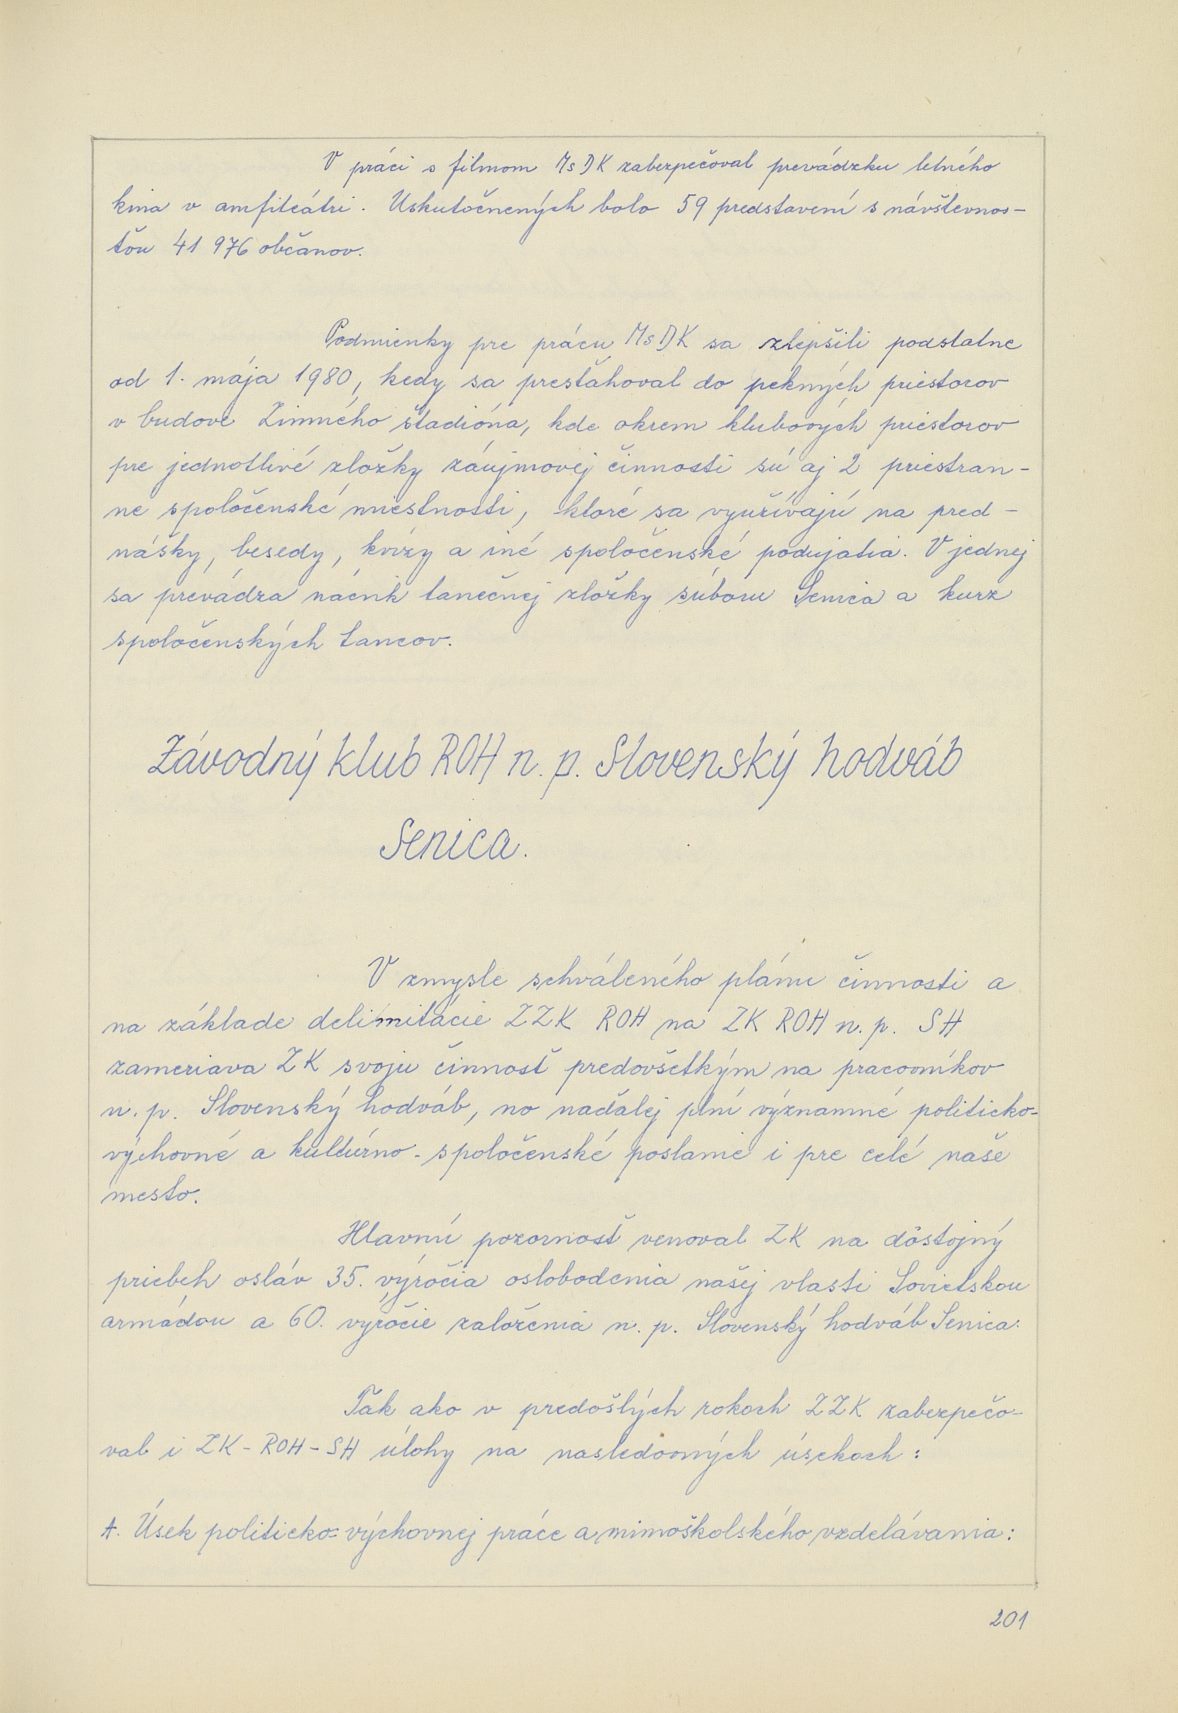 V práci s filmom MsDK zabezpečoval prevádzku letného
kina v amfiteátri. Uskutočnených bolo 59 predstavení s návštevnos-
ťou 41 976 občanov.
Podmienky pre prácu MsDK sa zlepšili podstatne
od 1. mája 1980, kedy sa presťahoval do pekných priestorov
v budove Zimného štadióna, kde okrem klubových priestorov
pre jednotlivé zložky záujmovej činnosti sú aj 2 priestran-
né spoločenské miestnosti, ktoré sa využívajú na pred-
nášky, besedy, kvízy a iné spoločenské podujatia. V jednej
sa prevádza nácvik tanečnej zložky súboru Senica a kurz
spoločenských tancov.
Závodný klub ROH n. p. Slovenský hodváb
Senica.
V zmysle schváleného plánu činnosti a
na základe delimitácie ZZK ROH na ZK ROH n. p. SH
zameriava ZK svoju činnosť predovšetkým na pracovníkov
n. p. Slovenský hodváb, no naďalej plní významné politicko-
výchovné a kultúrno-spoločenské poslanie i pre celé naše
mesto.
Hlavnú pozornosť venoval ZK na dôstojný
priebeh osláv 35. výročia oslobodenia našej vlasti Sovietskou
armádou a 60. výročie založenia n. p. Slovenský hodváb Senica.
Tak ako v predošlých rokoch ZZK zabezpečo-
val i ZK-ROH-SH úlohy na nasledovných úsekoch:
A. Úsek politicko-výchovnej práce a mimoškolského vzdelávania:
201